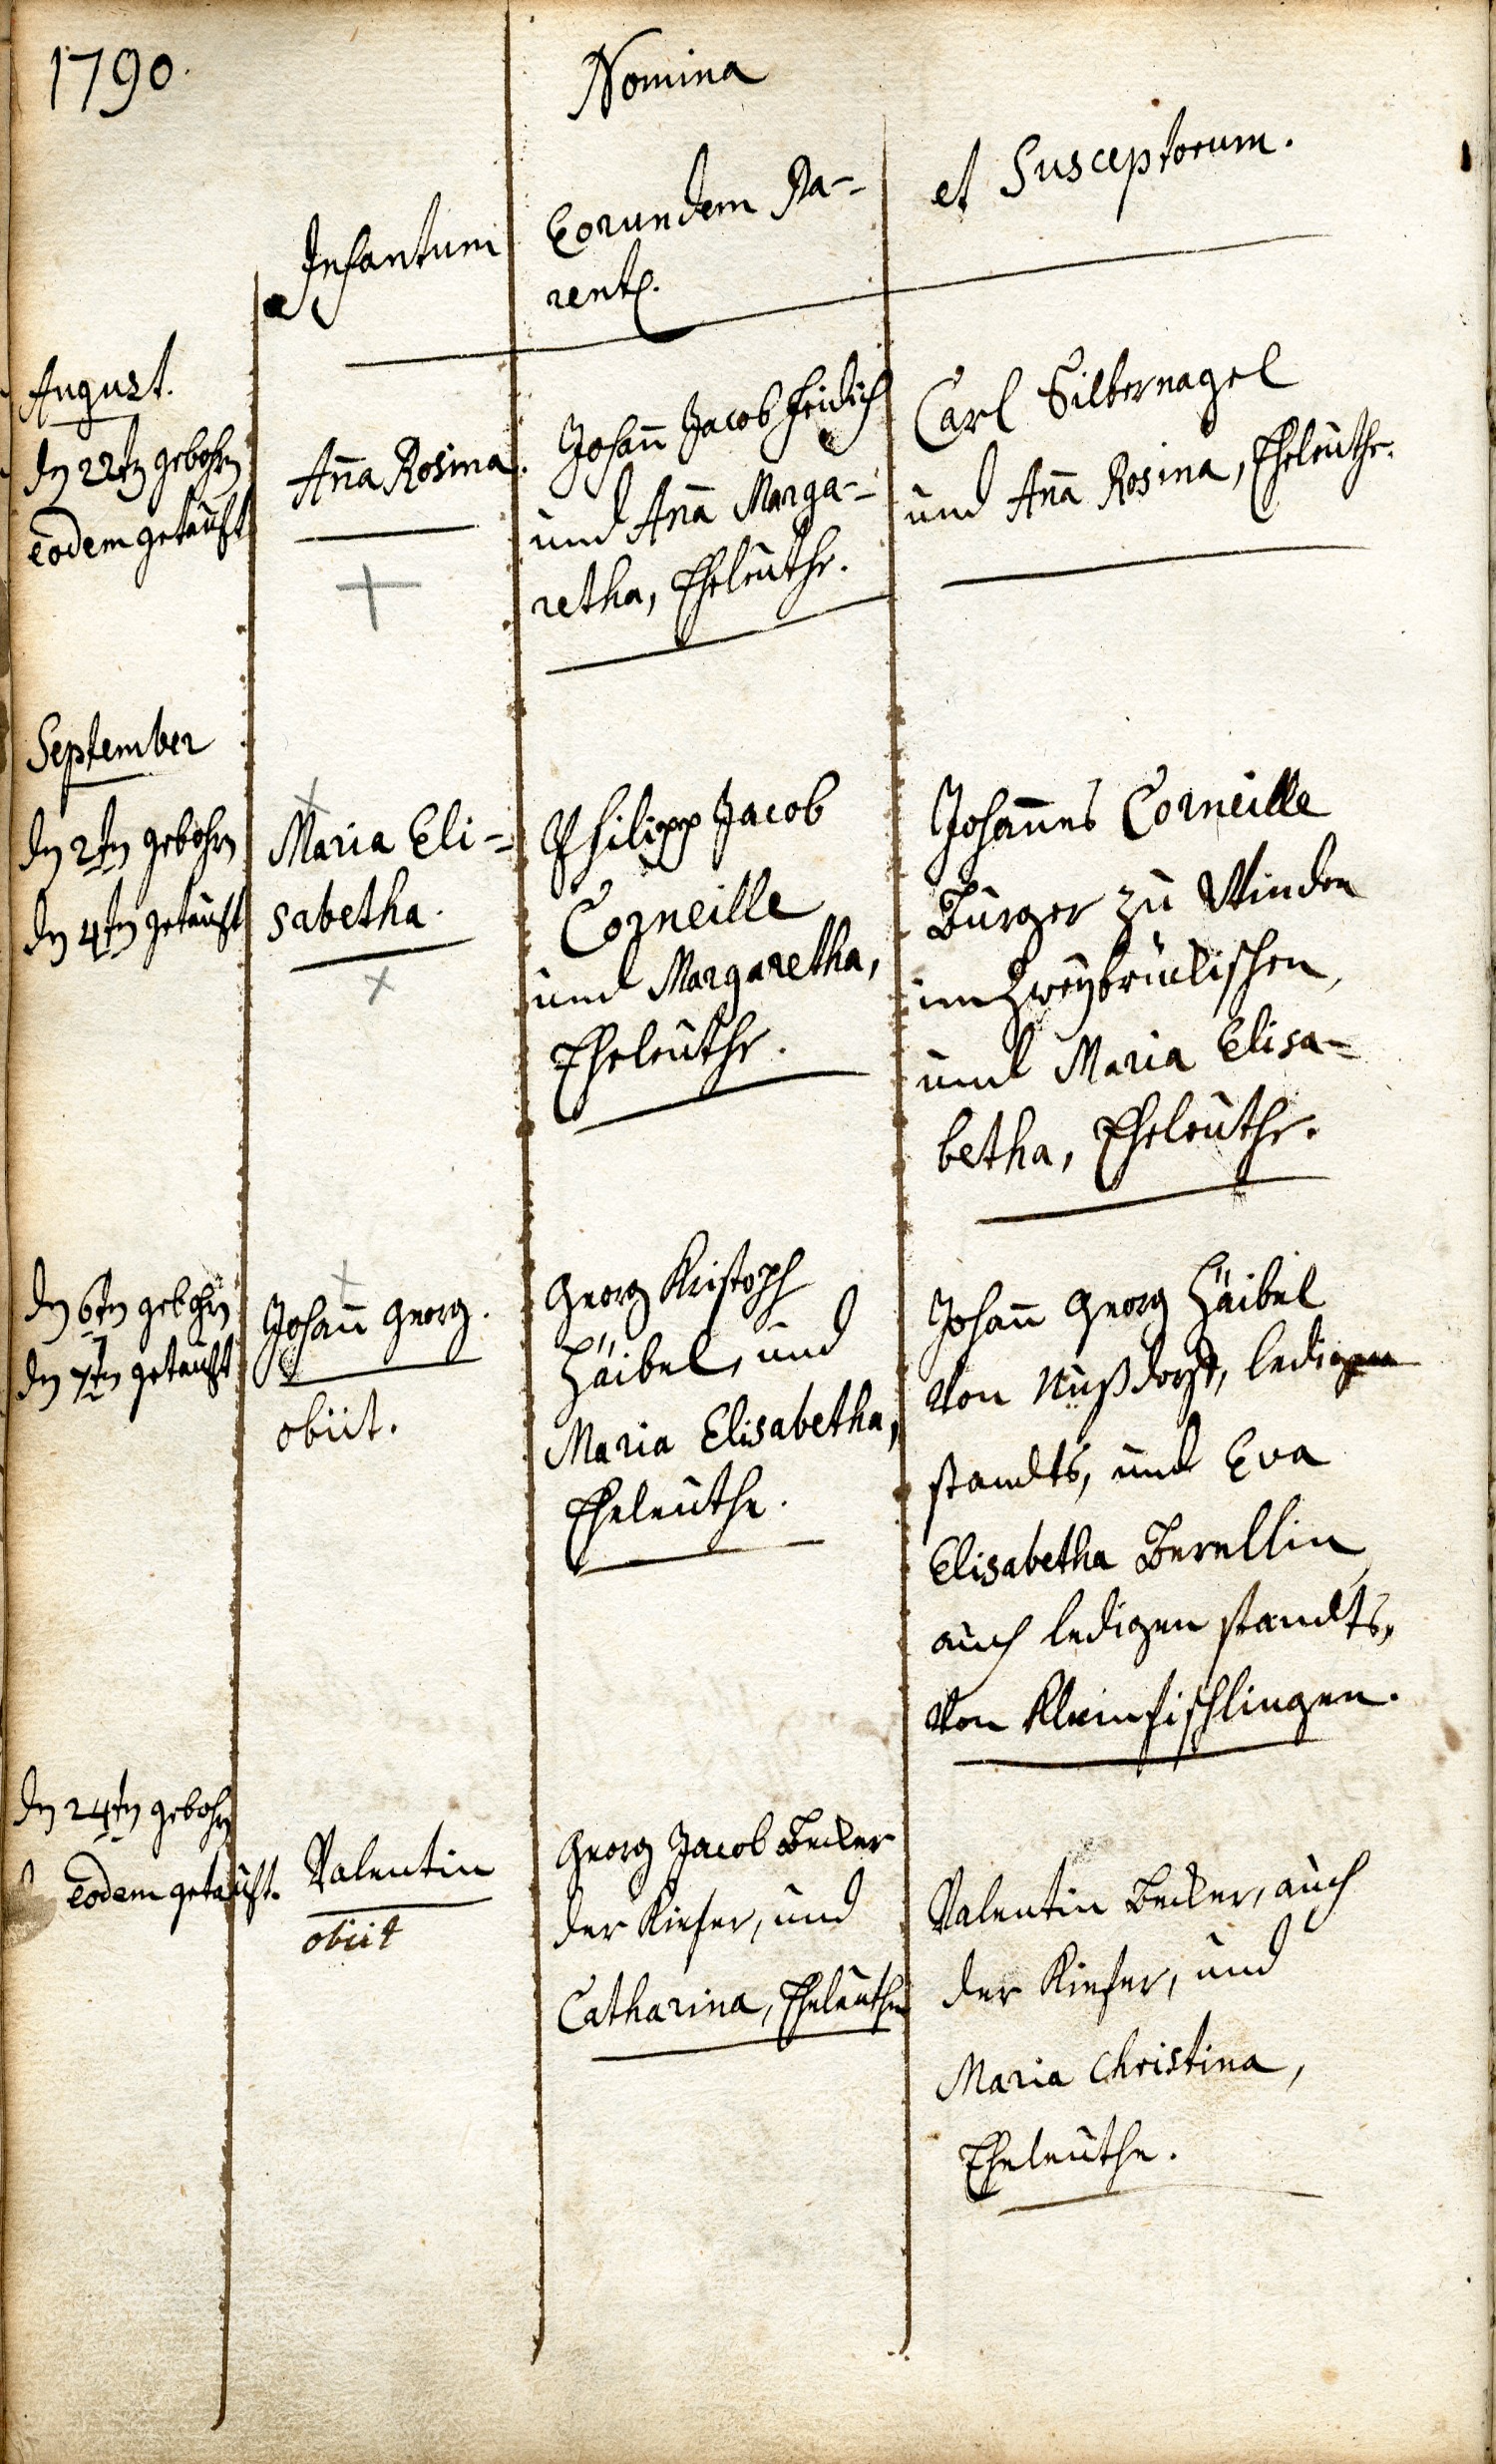 1790.
Nomina
Infantum
Eorundem Pa-
rent.
et Susceptorum.
August.
den 22ten gebohrn
eodem getauft
Anna Rosina.
Johann Jacob
und Anna Marga-
retha, Eheleuthe.
Carl Silbernagel
und Anna Rosina, Eheleuthe.
September
den 2ten gebohrn
den 4ten getauft
Maria Eli-
sabetha.
Philipp Jacob
Corneille
und Margaretha,
Eheleuthe.
Johannes Corneille
Burger zu Winden
im Zweybrückischen,
und Maria Elisa-
betha, Eheleuthe.
den 6ten gebohrn
den 7ten getauft
Johann Georg.
obiit.
Georg Kristoph
Häibel, und
Maria Elisabetha,
Eheleuthe.
Johann Georg Häibel
von Nußdorf, ledigen
standts, und Eva
Elisabetha
auch ledigen standts,
von Kleinfischlingen.
den 24ten gebohrn
eodem getauft.
Valentin
obiit
Georg Jacob Becker
der Kiefer, und
Catharina, Eheleuthe
Valentin Becker, auch
der Kiefer, und
Maria Christina,
Eheleuthe.